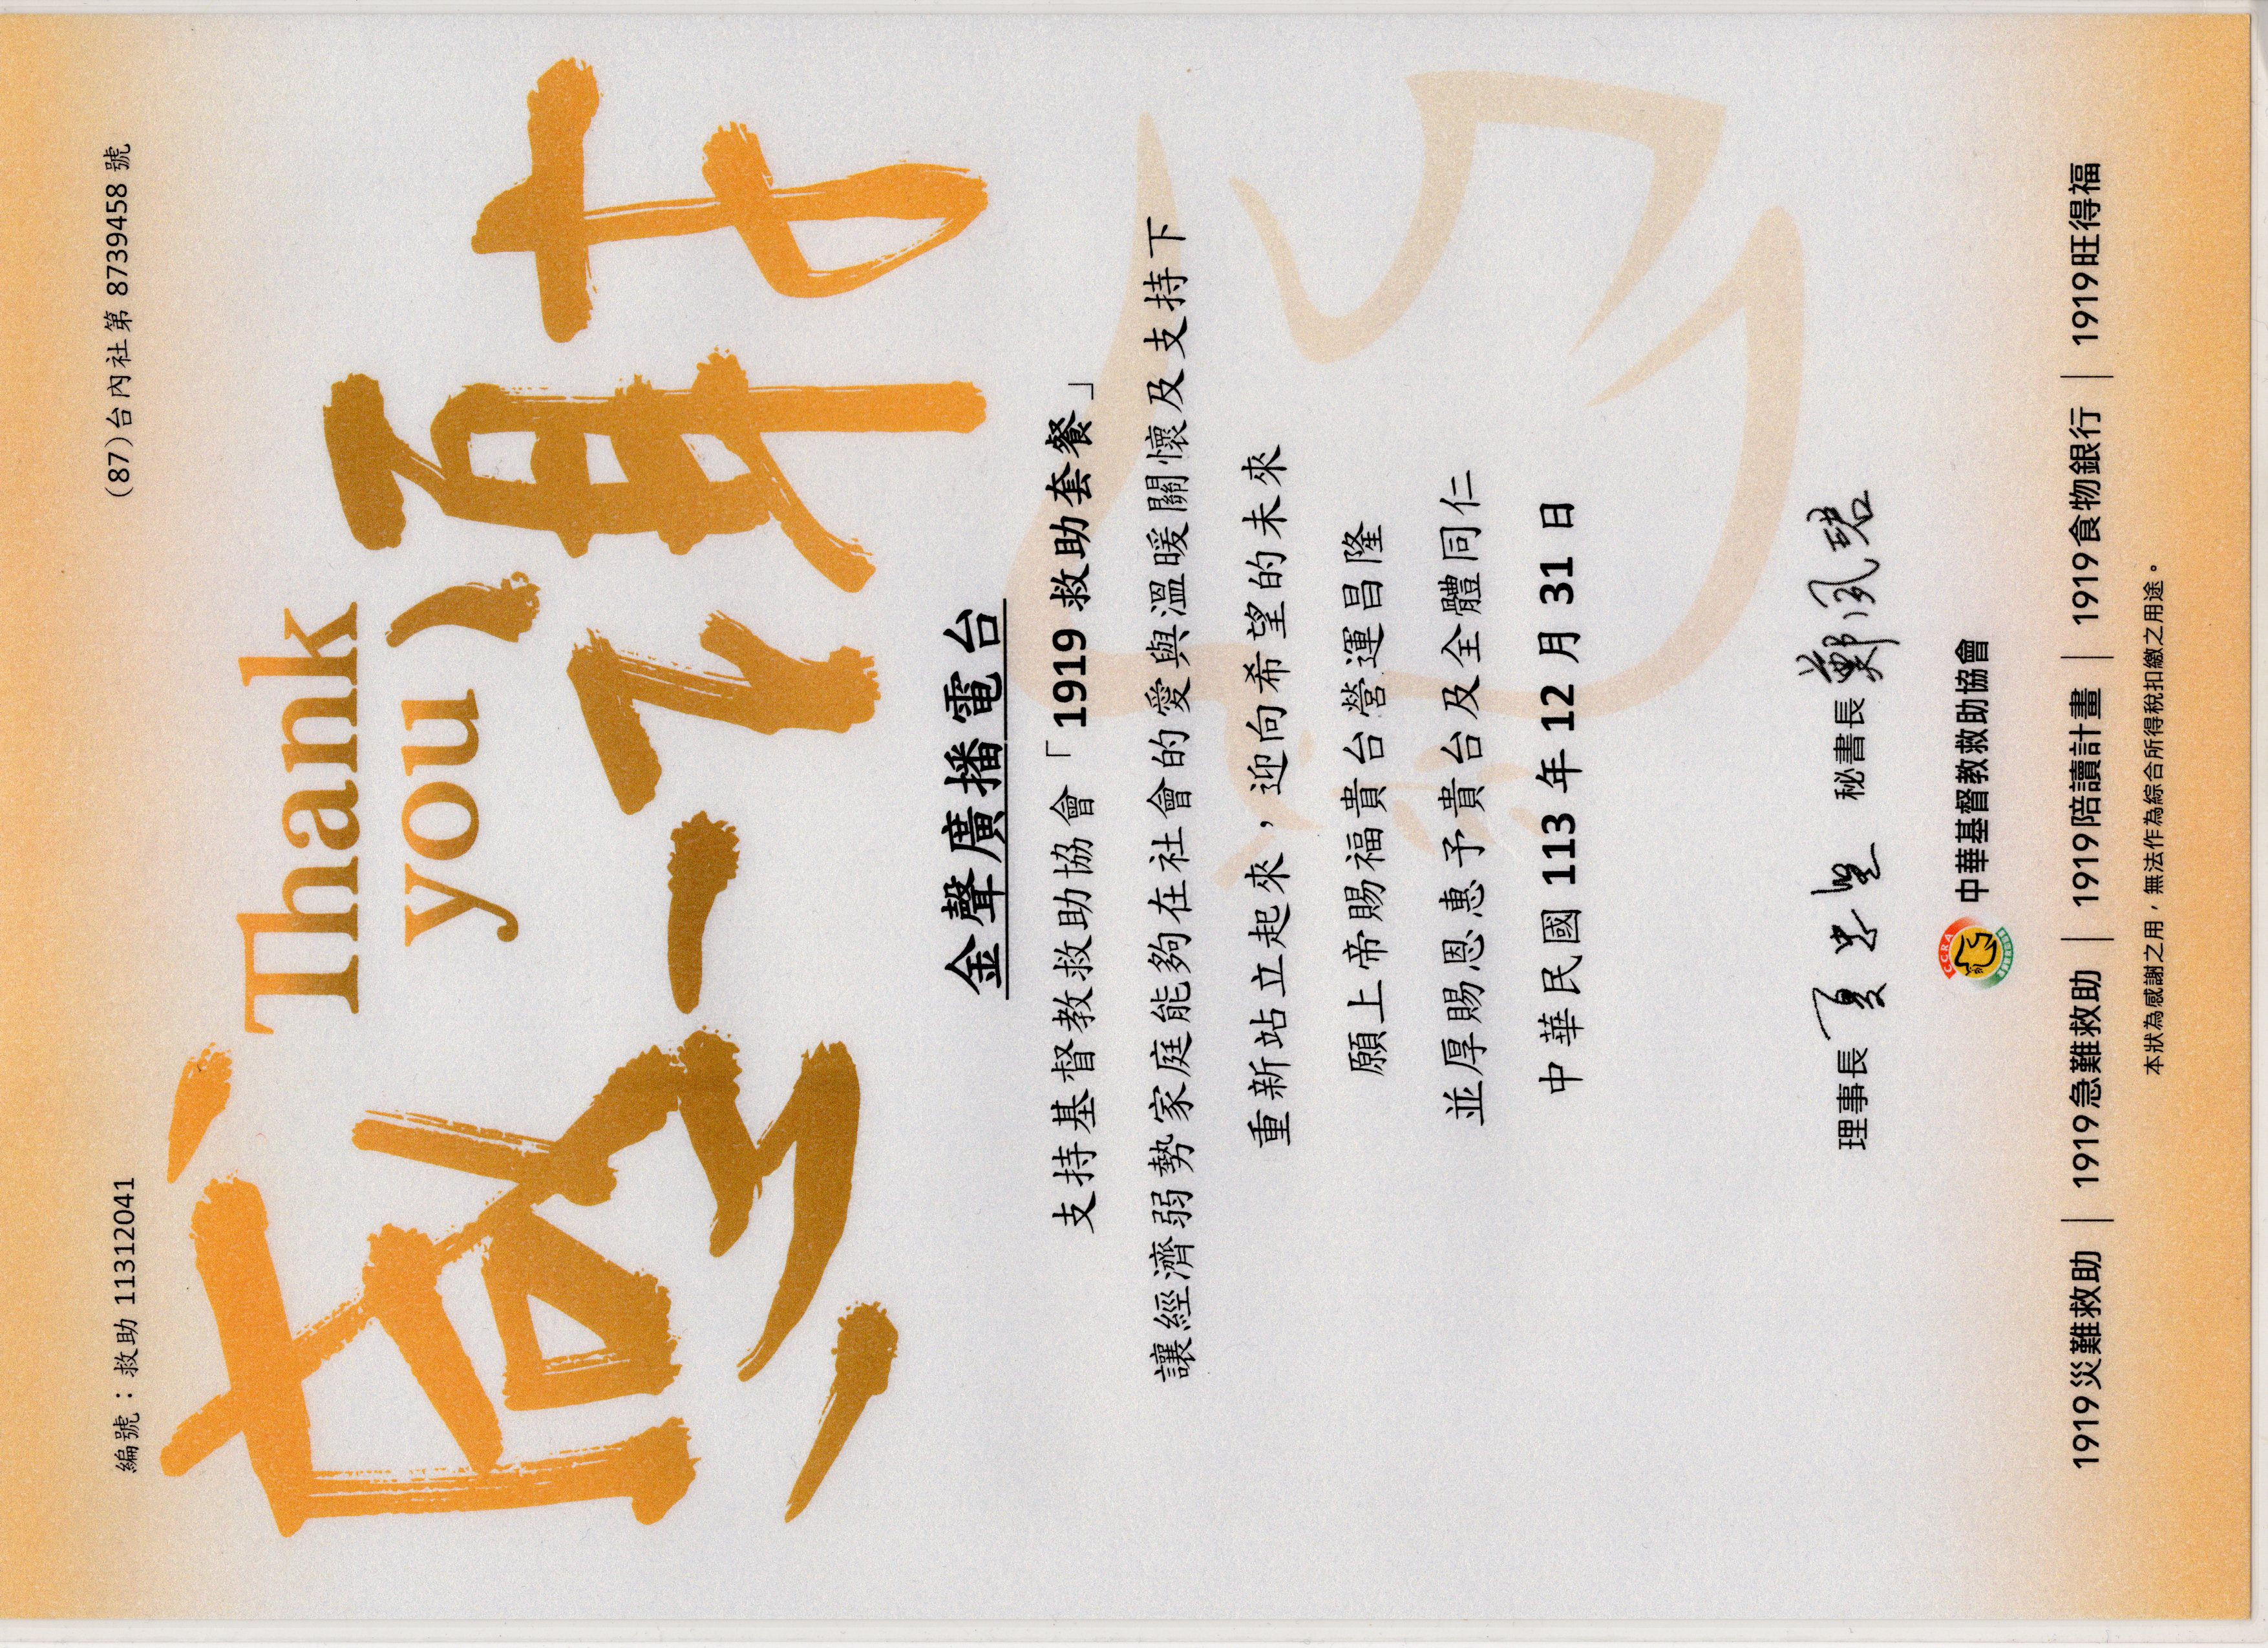 編號：救助 11312041
(87)台內社第 8739458 號
感謝
Thank
you
金聲廣播電台
支持基督教救助協會「1919 救助套餐」
讓經濟弱勢家庭能夠在社會的愛與溫暖關懷及支持下
重新站立起來，迎向希望的未來
願上帝賜福貴台營運昌隆
並厚賜恩惠予貴台及全體同仁
中華民國 113 年 12 月 31 日
理事長 夏忠堅 秘書長 鄭夙珺
CCRA
中華基督教救助協會
1919災難救助｜1919急難救助｜1919陪讀計畫｜1919食物銀行｜1919旺得福
本狀為感謝之用，無法作為綜合所得稅扣繳之用途。